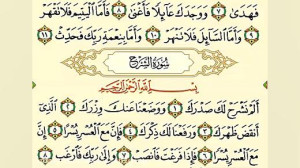 فَهَدَىٰ ٧ وَوَجَدَكَ عَآئِلًا فَأَغْنَىٰ ٨ فَأَمَّا ٱلْيَتِيمَ فَلَا تَقْهَرْ
٩ وَأَمَّا ٱلسَّآئِلَ فَلَا تَنْهَرْ ١٠ وَأَمَّا بِنِعْمَةِ رَبِّكَ فَحَدِّثْ ١١
سُورَةُ الشَّرْحِ
بِسْمِ ٱللَّهِ ٱلرَّحْمَٰنِ ٱلرَّحِيمِ
أَلَمْ نَشْرَحْ لَكَ صَدْرَكَ ١ وَوَضَعْنَا عَنكَ وِزْرَكَ ٢ ٱلَّذِىٓ
أَنقَضَ ظَهْرَكَ ٣ وَرَفَعْنَا لَكَ ذِكْرَكَ ٤ فَإِنَّ مَعَ ٱلْعُسْرِ يُسْرًا ٥ إِنَّ
مَعَ ٱلْعُسْرِ يُسْرًا ٦ فَإِذَا فَرَغْتَ فَٱنصَبْ ٧ وَإِلَىٰ رَبِّكَ فَٱرْغَب ٨